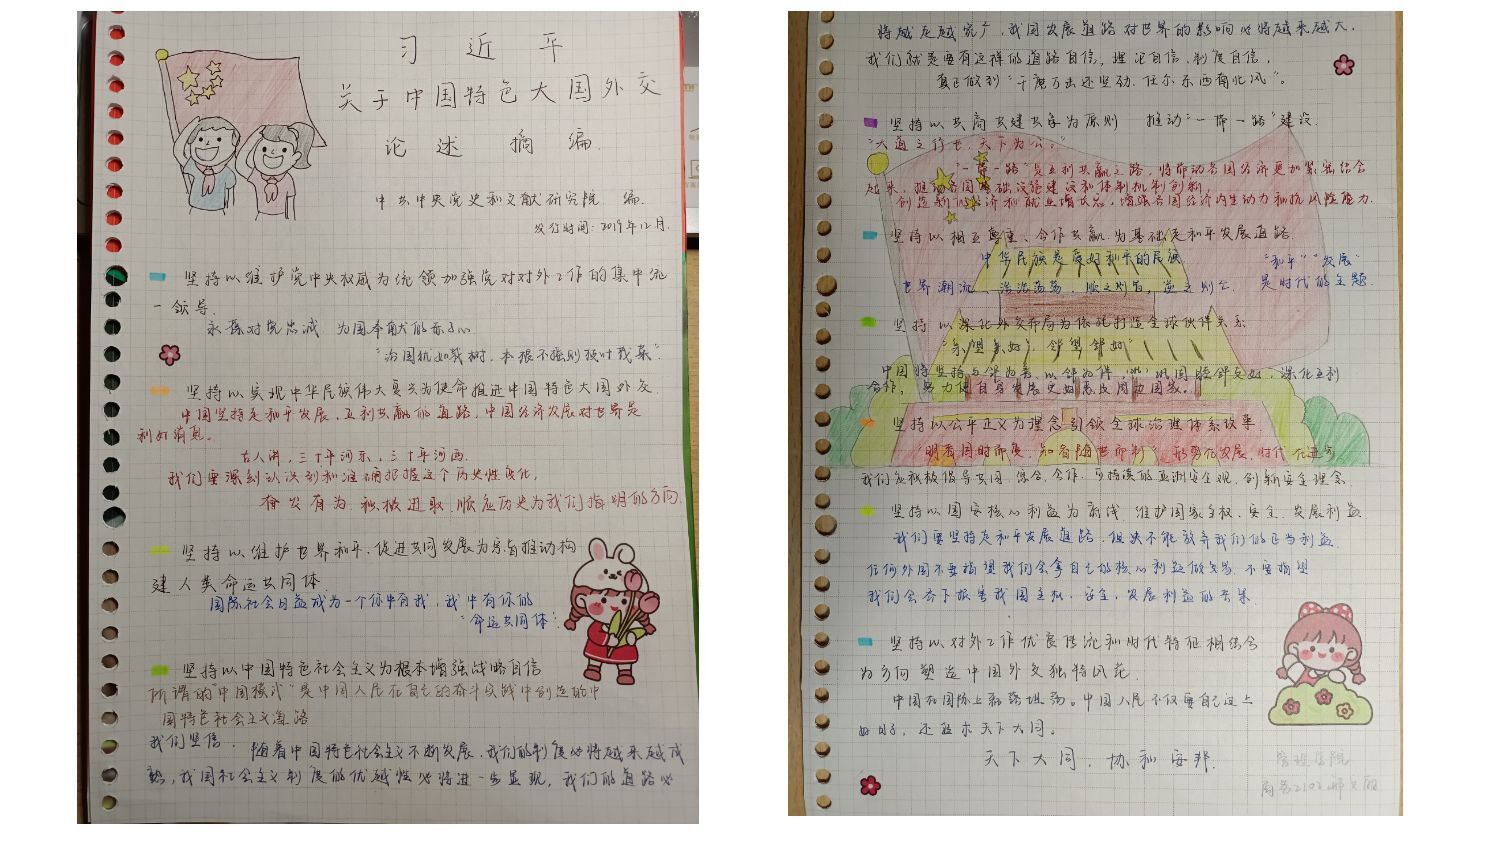 习近平
关于中国特色大国外交
论述摘编
中共中央党史和文献研究院 编
发行时间：2019年12月.
坚持以维护党中央权威为统领加强党对对外工作的集中统
一领导.
永葆对党忠诚 为国奉献的赤子心
"治国犹如栽树，本根不摇则枝叶茂荣".
坚持以实现中华民族伟大复兴为使命推进中国特色大国外交
中国坚持走和平发展、互利共赢的道路，中国经济发展对世界是
利好消息。
古人讲，三十年河东，三十年河西.
我们要深刻认识到和准确把握这个历史性变化，
奋发有为 积极进取 顺应历史为我们指明的方向.
坚持以维护世界和平、促进共同发展为宗旨推动构
建人类命运共同体.
国际社会日益成为一个你中有我，我中有你的
"命运共同体".
坚持以中国特色社会主义为根本增强战略自信
所谓的"中国模式"是中国人民在自己的奋斗实践中创造的中
国特色社会主义道路
我们坚信，随着中国特色社会主义不断发展，我们的制度必将越来越成
熟，我国社会主义制度的优越性必将进一步显现，我们的道路必
将越走越宽广，我国发展道路对世界的影响必将越来越大.
我们就是要有这样的道路自信，理论自信，制度自信，
真正做到"千磨万击还坚劲，任尔东西南北风"。
坚持以共商共建共享为原则 推动"一带一路"建设.
"大道之行也，天下为公。"
"一带一路"是互利共赢之路，将带动各国经济更加紧密结合
起来，推动各国基础设施建设和体制机制创新，
创造新的经济和就业增长点，增强各国经济内生动力和抗风险能力.
坚持以相互尊重、合作共赢为基础走和平发展道路.
中华民族是爱好和平的民族 "和平""发展"
世界潮流，浩浩荡荡，顺之则昌，逆之则亡. 是时代的主题.
坚持以深化外交布局为依托打造全球伙伴关系
"亲望亲好，邻望邻好"
中国将坚持与邻为善、以邻为伴 巩固睦邻友好，深化互利
合作，努力使自身发展更好惠及周边国家。
坚持以公平正义为理念引领全球治理体系改革.
"明者因时而变，知者随世而制" 形势在发展，时代在进步
我们应积极倡导共同，综合，合作，可持续的亚洲安全观，创新安全理念.
坚持以国家核心利益为底线 维护国家主权、安全、发展利益
我们要坚持走和平发展道路，但决不能放弃我们的正当利益.
任何外国不要指望我们会拿自己的核心利益做交易，不要指望
我们会吞下损害我国主权，安全，发展利益的苦果.
坚持以对外工作优良传统和时代特征相结合
为方向塑造中国外交独特风范.
中国在国际上磊落坦荡。中国人民不仅要自己过上
好日子，还追求天下大同。
天下大同，协和万邦.
管理学院
商务2102